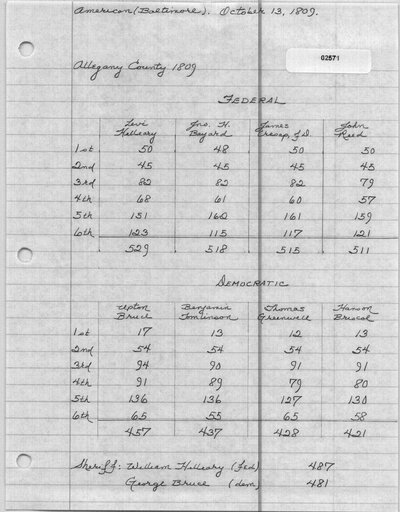 American (Baltimore). October 13, 1809.
02571
Allegany County 1809
FEDERAL
Levi Jno. H. James John
Hilleary Bayard Cresap, J.D. Reed
1st 50 48 50 50
2nd 45 45 45 45
3rd 82 82 82 79
4th 68 61 60 57
5th 151 160 161 159
6th 123 115 117 121
529 518 515 511
DEMOCRATIC
Upton Benjamin Thomas Hanson
Bruce Tomlinson Greenwell Briscoe
1st 17 13 12 13
2nd 54 54 54 54
3rd 94 90 91 91
4th 91 89 79 80
5th 136 136 127 130
6th 65 55 65 58
457 437 428 421
Sheriff: William Hilleary (fed) 487
George Bruce (dem) 481